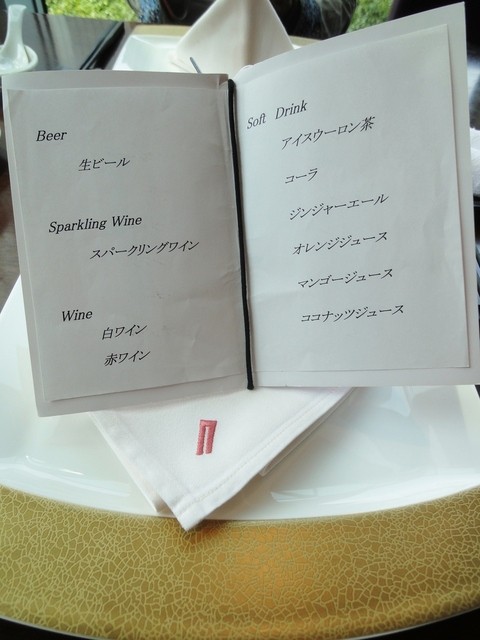 Beer
生ビール
Sparkling Wine
スパークリングワイン
Wine
白ワイン
赤ワイン
Soft Drink
アイスウーロン茶
コーラ
ジンジャーエール
オレンジジュース
マンゴージュース
ココナッツジュース